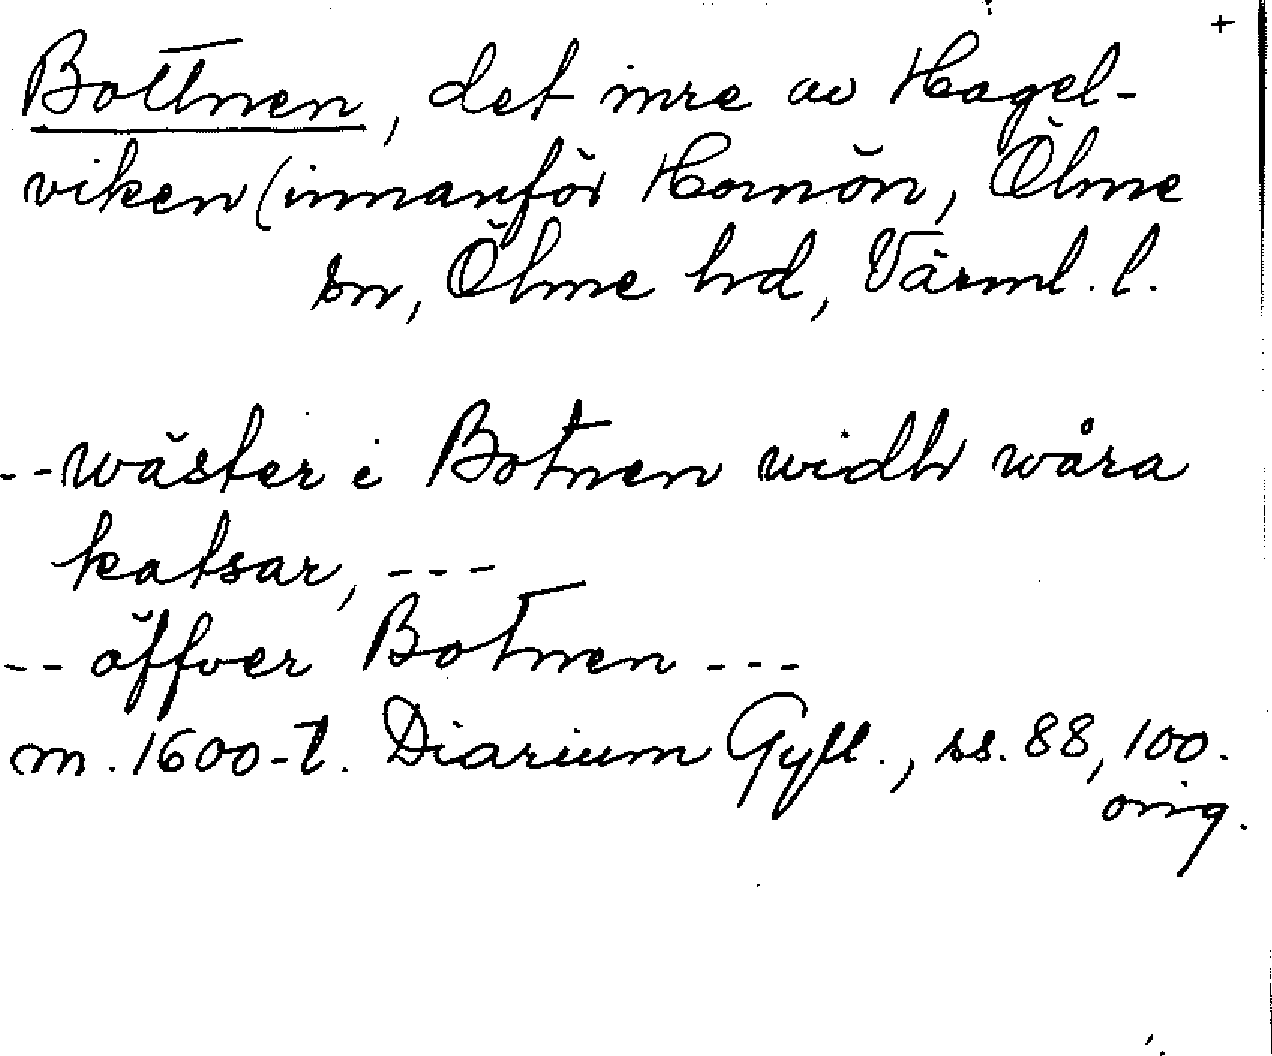 +
Bottnen, det inre av Hagel-
viken (innanför Hornön, Ölme
sn, Ölme hd, Värml. l.
--wäster i Botnen widh wåra
katsar, ---
-- öffver Botnen ---
m. 1600-t. Diarium Gyll., ss. 88, 100.
orig.